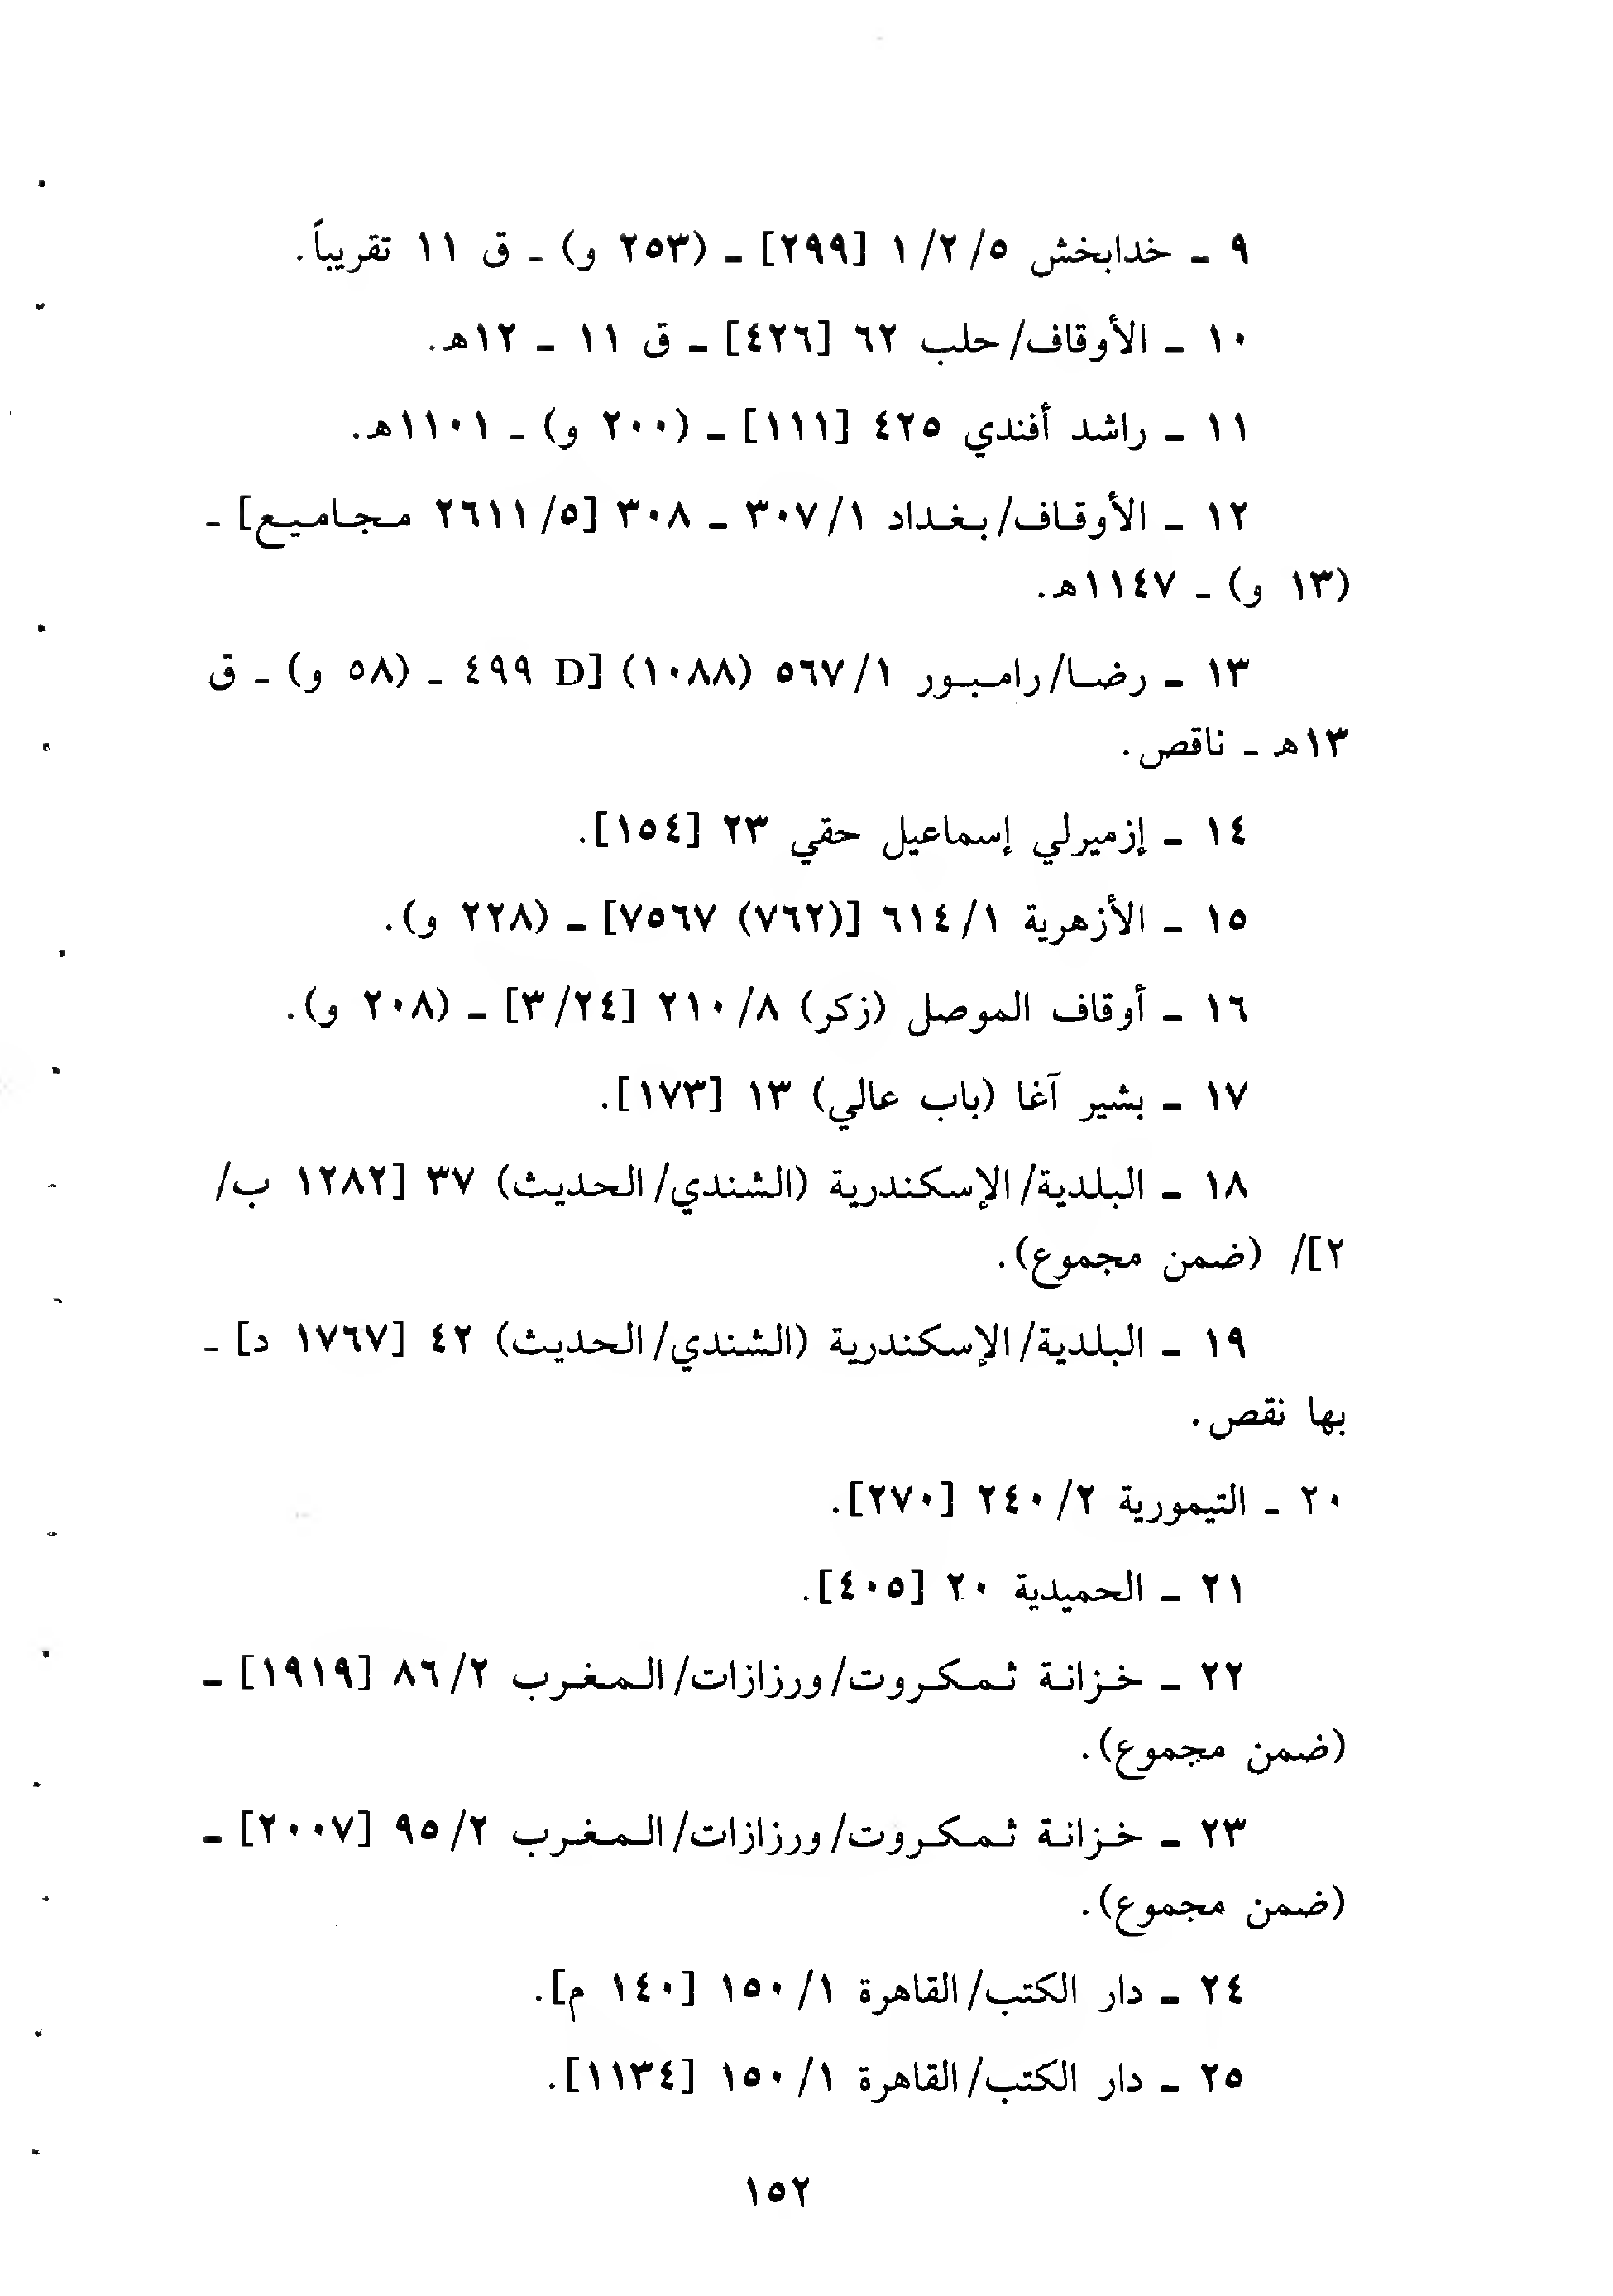 ٩ ـ خدابخش ٥/٢/١ [٢٩٩] ـ (٢٥٣ و) ـ ق ١١ تقريباً.
١٠ ـ الأوقاف/حلب ٦٢ [٤٢٦] ـ ق ١١ ـ ١٢هـ.
١١ ـ راشد أفندي ٤٢٥ [١١١] ـ (٢٠٠ و) ـ ١١٠١هـ.
١٢ ـ الأوقاف/بغداد ٣٠٧/١ ـ ٣٠٨ [٢٦١١/٥ مجاميع] ـ
(١٣ و) ـ ١١٤٧هـ.
١٣ ـ رضا/رامبور ٥٦٧/١ (١٠٨٨) [D ٤٩٩ ـ (٥٨ و) ـ ق
١٣هـ ـ ناقص.
١٤ ـ إزميرلي إسماعيل حقي ٢٣ [١٥٤].
١٥ ـ الأزهرية ٦١٤/١ [(٧٦٢) ٧٥٦٧] ـ (٢٢٨ و).
١٦ ـ أوقاف الموصل (زكر) ٢١٠/٨ [٣/٢٤] ـ (٢٠٨ و).
١٧ ـ بشير آغا (باب عالي) ١٣ [١٧٣].
١٨ ـ البلدية/الإسكندرية (الشندي/الحديث) ٣٧ [١٢٨٢ ب/
٢]/ (ضمن مجموع).
١٩ ـ البلدية/الإسكندرية (الشندي/الحديث) ٤٢ [١٧٦٧ د] ـ
بها نقص.
٢٠ ـ التيمورية ٢٤٠/٢ [٢٧٠].
٢١ ـ الحميدية ٢٠ [٤٠٥].
٢٢ ـ خزانة ثمكروت/ورزازات/المغرب ٨٦/٢ [١٩١٩] ـ
(ضمن مجموع).
٢٣ ـ خزانة ثمكروت/ورزازات/المغرب ٩٥/٢ [٢٠٠٧] ـ
(ضمن مجموع).
٢٤ ـ دار الكتب/القاهرة ١٥٠/١ [١٤٠ م].
٢٥ ـ دار الكتب/القاهرة ١٥٠/١ [١١٣٤].
١٥٢